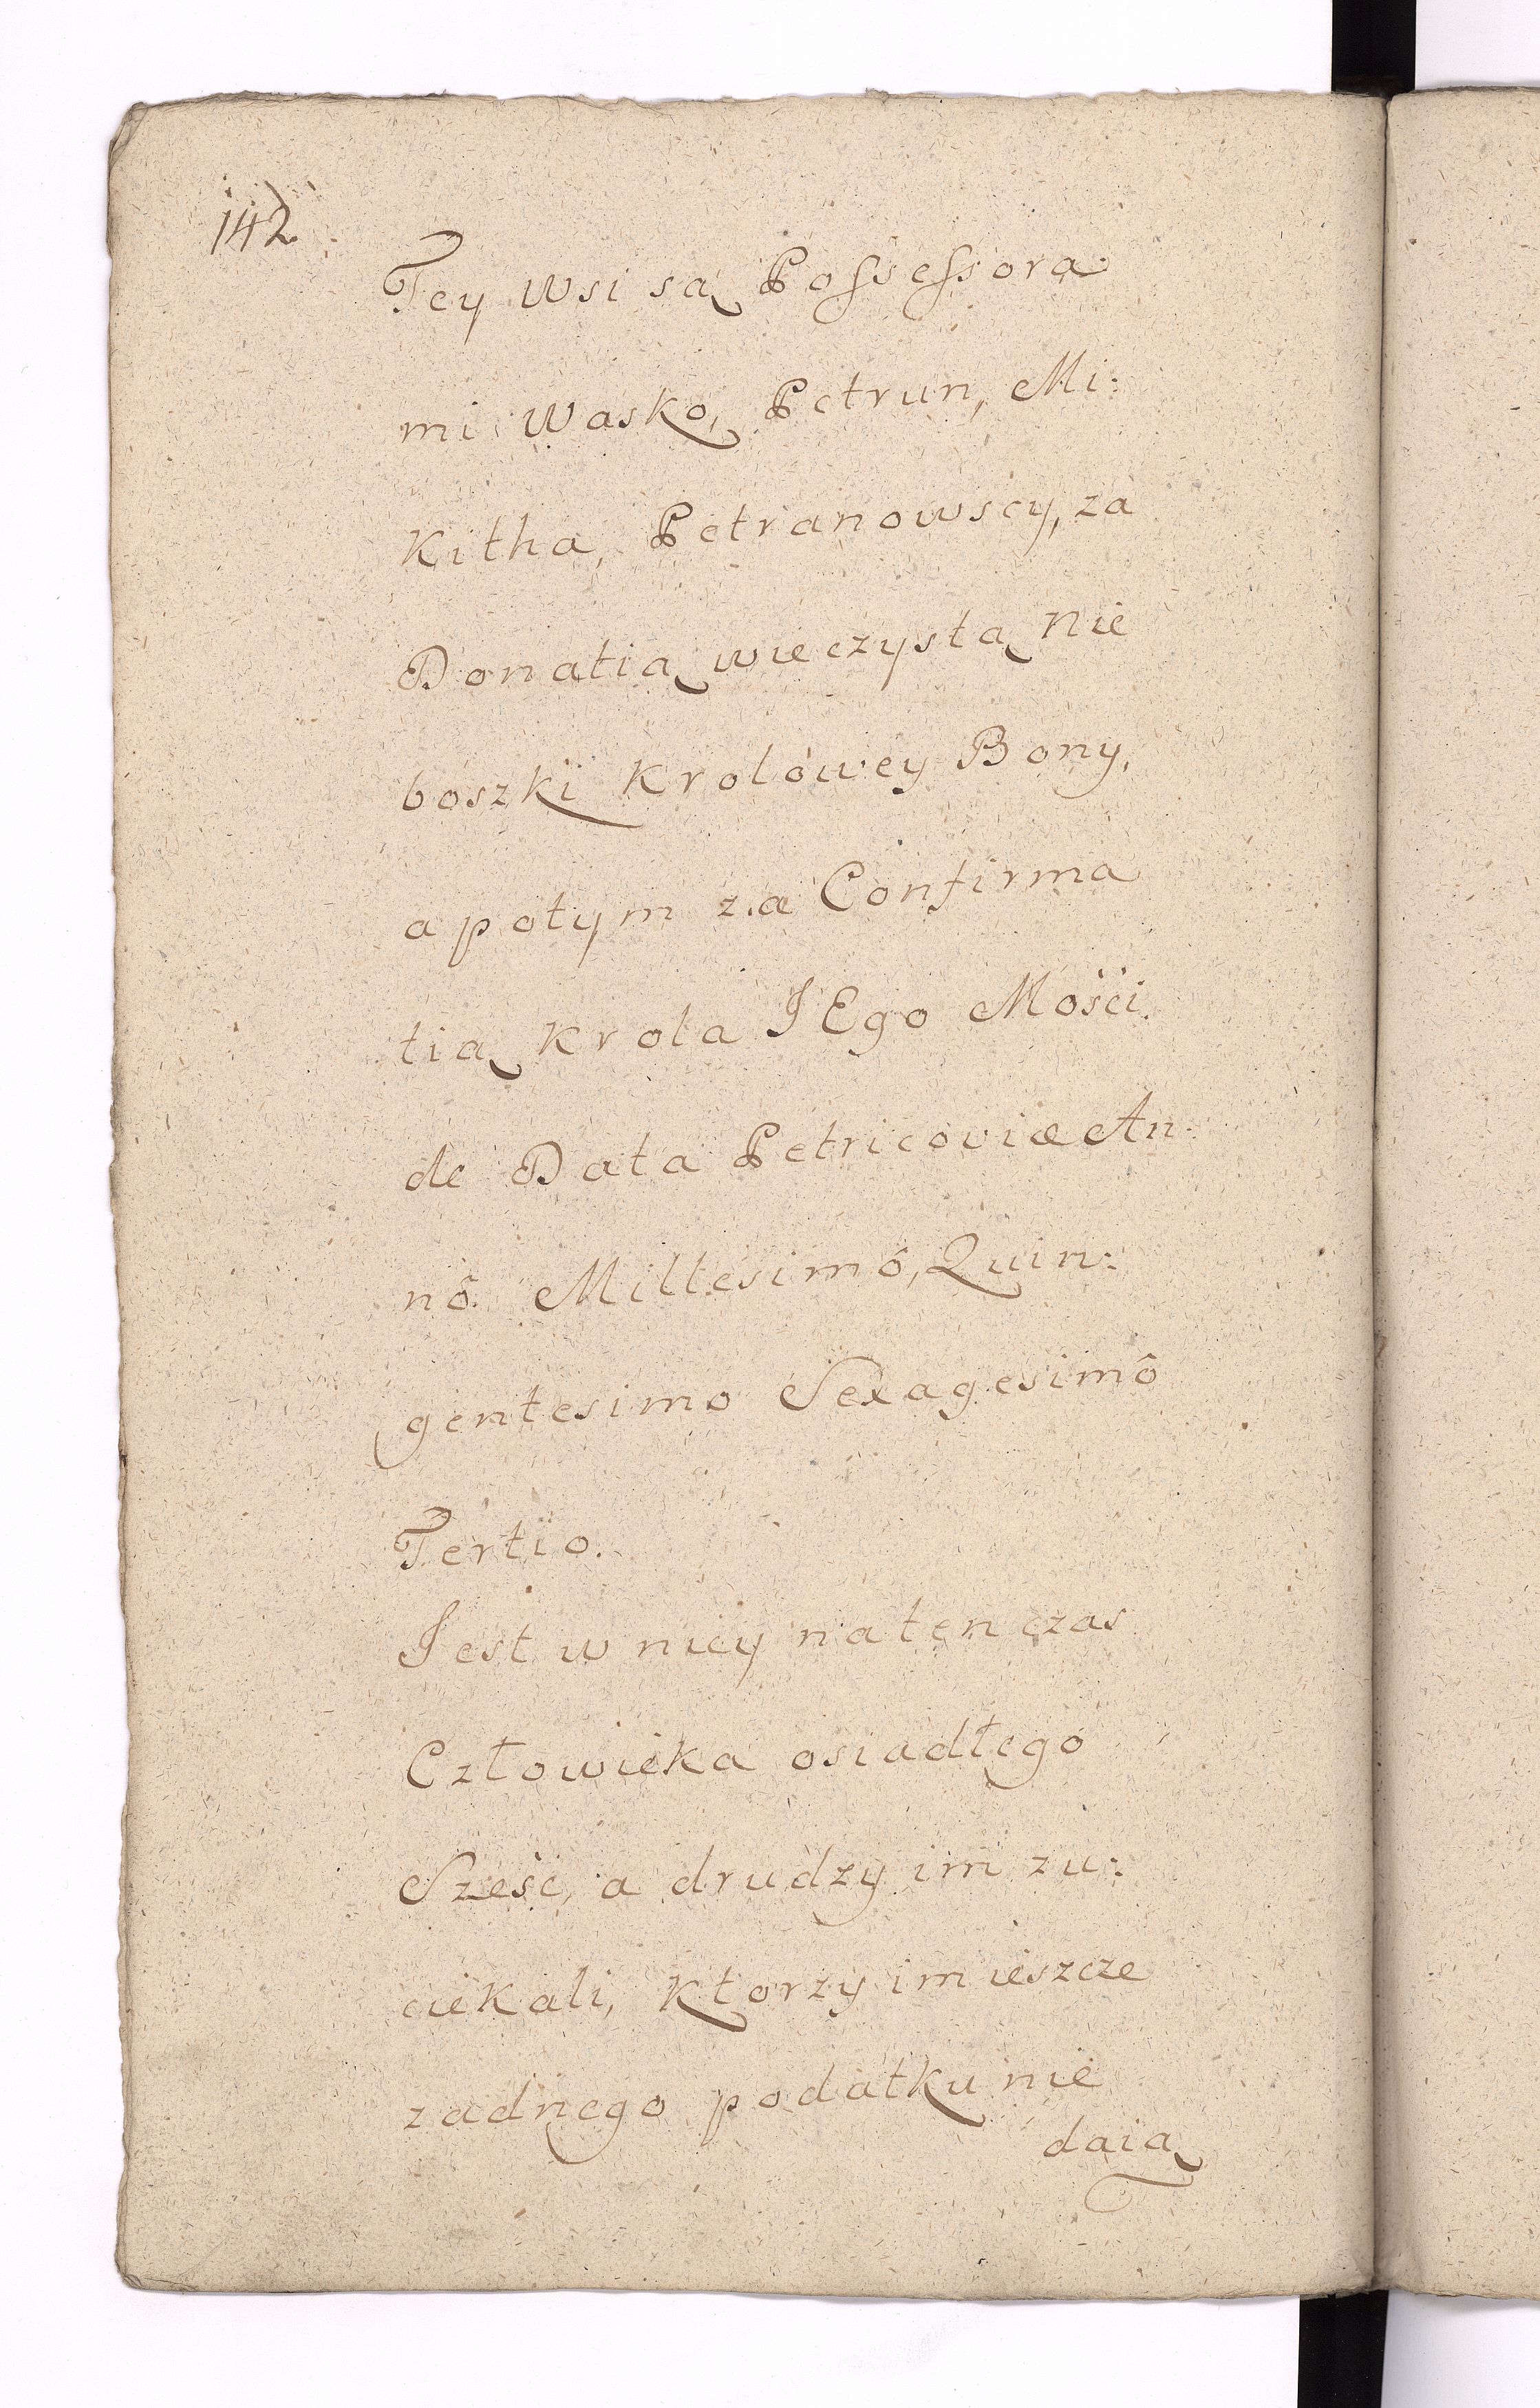 142.
Tey wsi są Possessora
mi Wasko, Petrun, Mi:
Kitha, Petranowscy, za
Donatią wieczystą Nie
boszki Krolowey Bony,
a potym za Confirma
tią Krola JEgo Mości.
de Data Petricoviæ An
nô Millesimô, Quin:
gentesimo Sexagesimô
Tertio.
Jest w niey na ten czas
Człowieka osiadłego
Sześc, a drudzy im zu:
ciekali, Ktorzy im ieszcze
zadnego podatku nie
daią